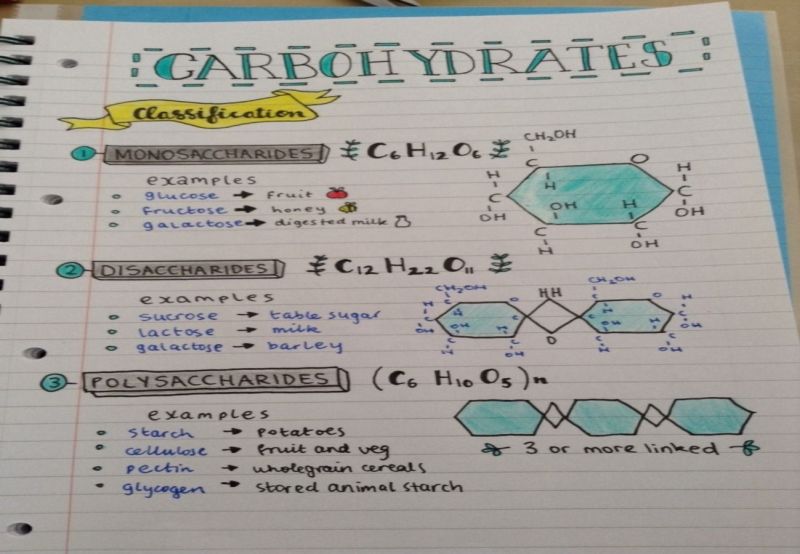 CARBOHYDRATES
Classification
1 MONOSACCHARIDES C6 H12 O6
examples
glucose → fruit
fructose → honey
galactose → digested milk
CH2OH
C
O
H
C
OH
H
OH
H
H
C
OH
C
H
C
OH
2 DISACCHARIDES C12 H22 O11
examples
sucrose → table sugar
lactose → milk
galactose → barley
CH2OH
O
H
C
OH
OH
C
H
C
OH
HH
O
CH2OH
O
H
C
OH
OH
C
H
C
OH
3 POLYSACCHARIDES (C6 H10 O5)n
examples
starch → potatoes
cellulose → fruit and veg
pectin → wholegrain cereals
glycogen → stored animal starch
3 or more linked